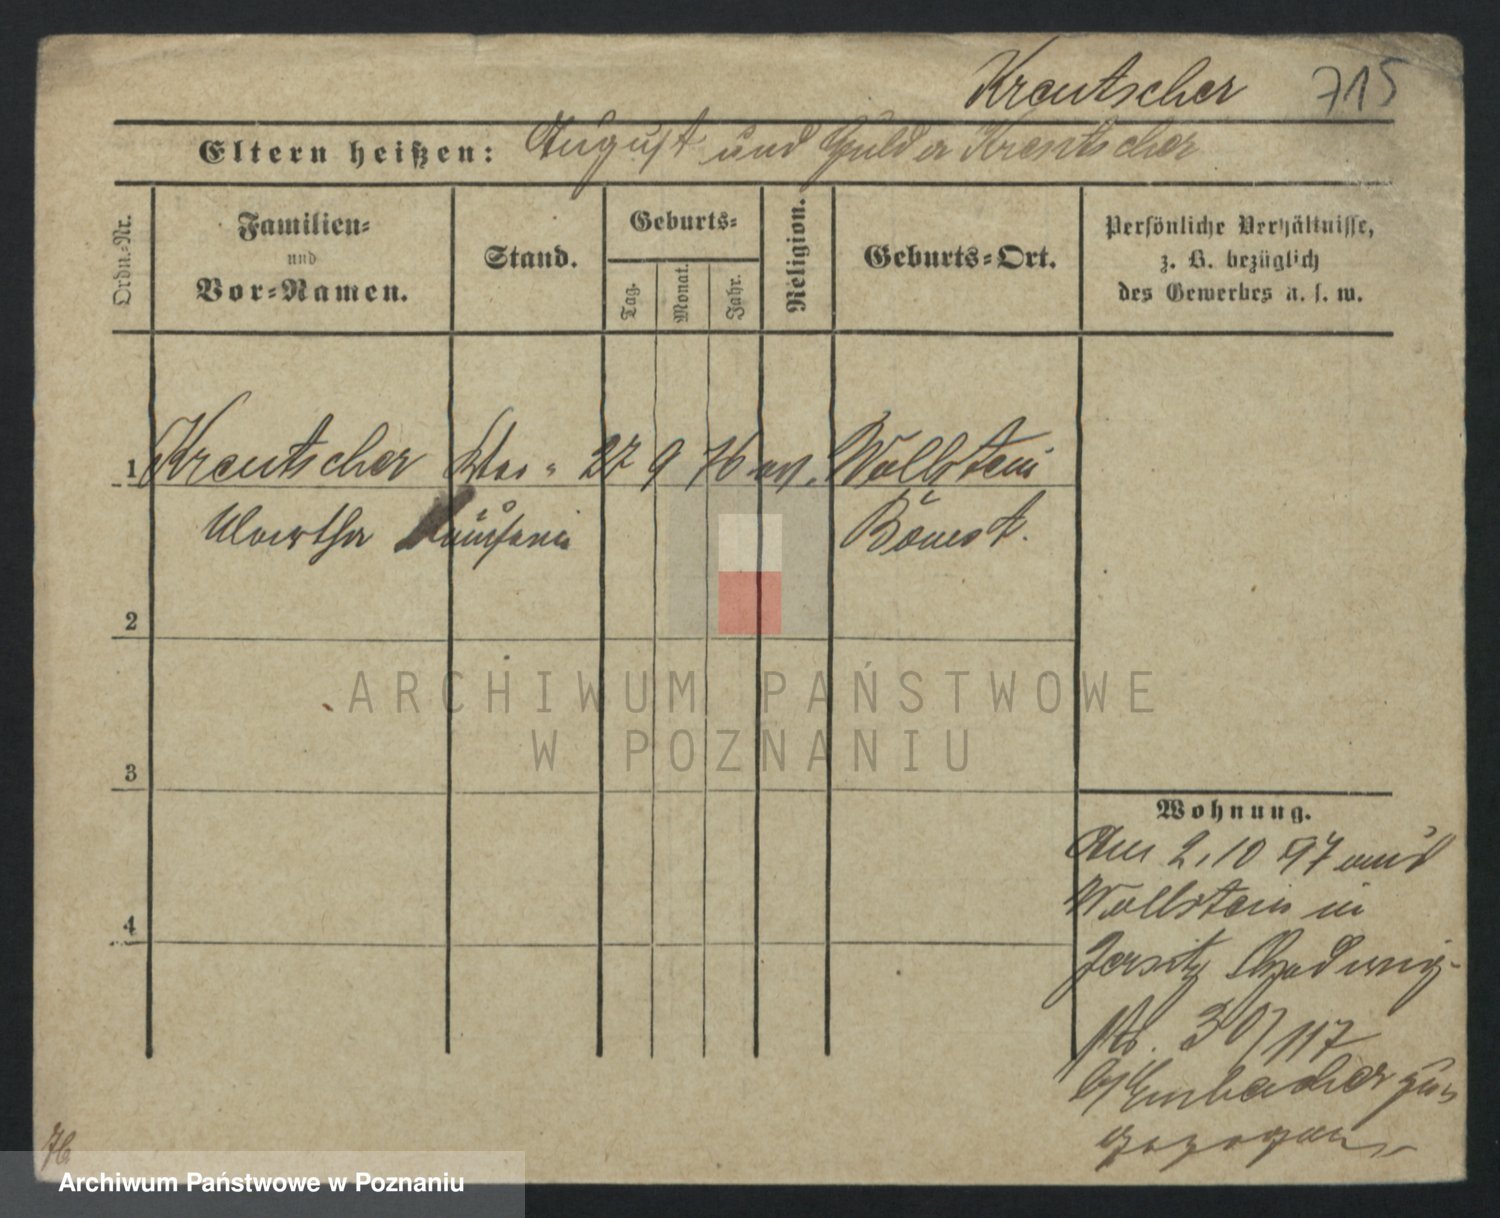 Krautscher 715
Eltern heißen: August und Hulda Krautscher
Ordn.-Nr.
Familien-
und
Vor-Namen.
Stand.
Geburts-
Tag.
Monat.
Jahr.
Religion.
Geburts-Ort.
Persönliche Verhältnisse,
z. B. bezüglich
des Gewerbes u. s. w.
1 Krautscher 27 9 76 ev. Wollstein
Martha Bomst.
2
ARCHIWUM PAŃSTWOWE
W POZNANIU
3
Wohnung.
Am 2.10 97 aus
Wollstein in
4
Jersitz Hedwig-
str. 30/117
zu-
gezogen
76
Archiwum Państwowe w Poznaniu